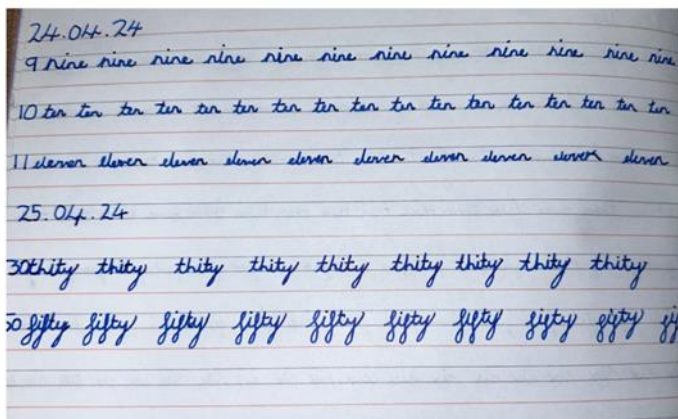 24.04.24
9 nine nine nine nine nine nine nine nine nine nine nine nine
10 ten ten ten ten ten ten ten ten ten ten ten ten ten ten ten ten ten
11 eleven eleven eleven eleven eleven eleven eleven eleven eleven eleven
25.04.24
30 thity thity thity thity thity thity thity thity thity
50 fifty fifty fifty fifty fifty fifty fifty fifty fifty